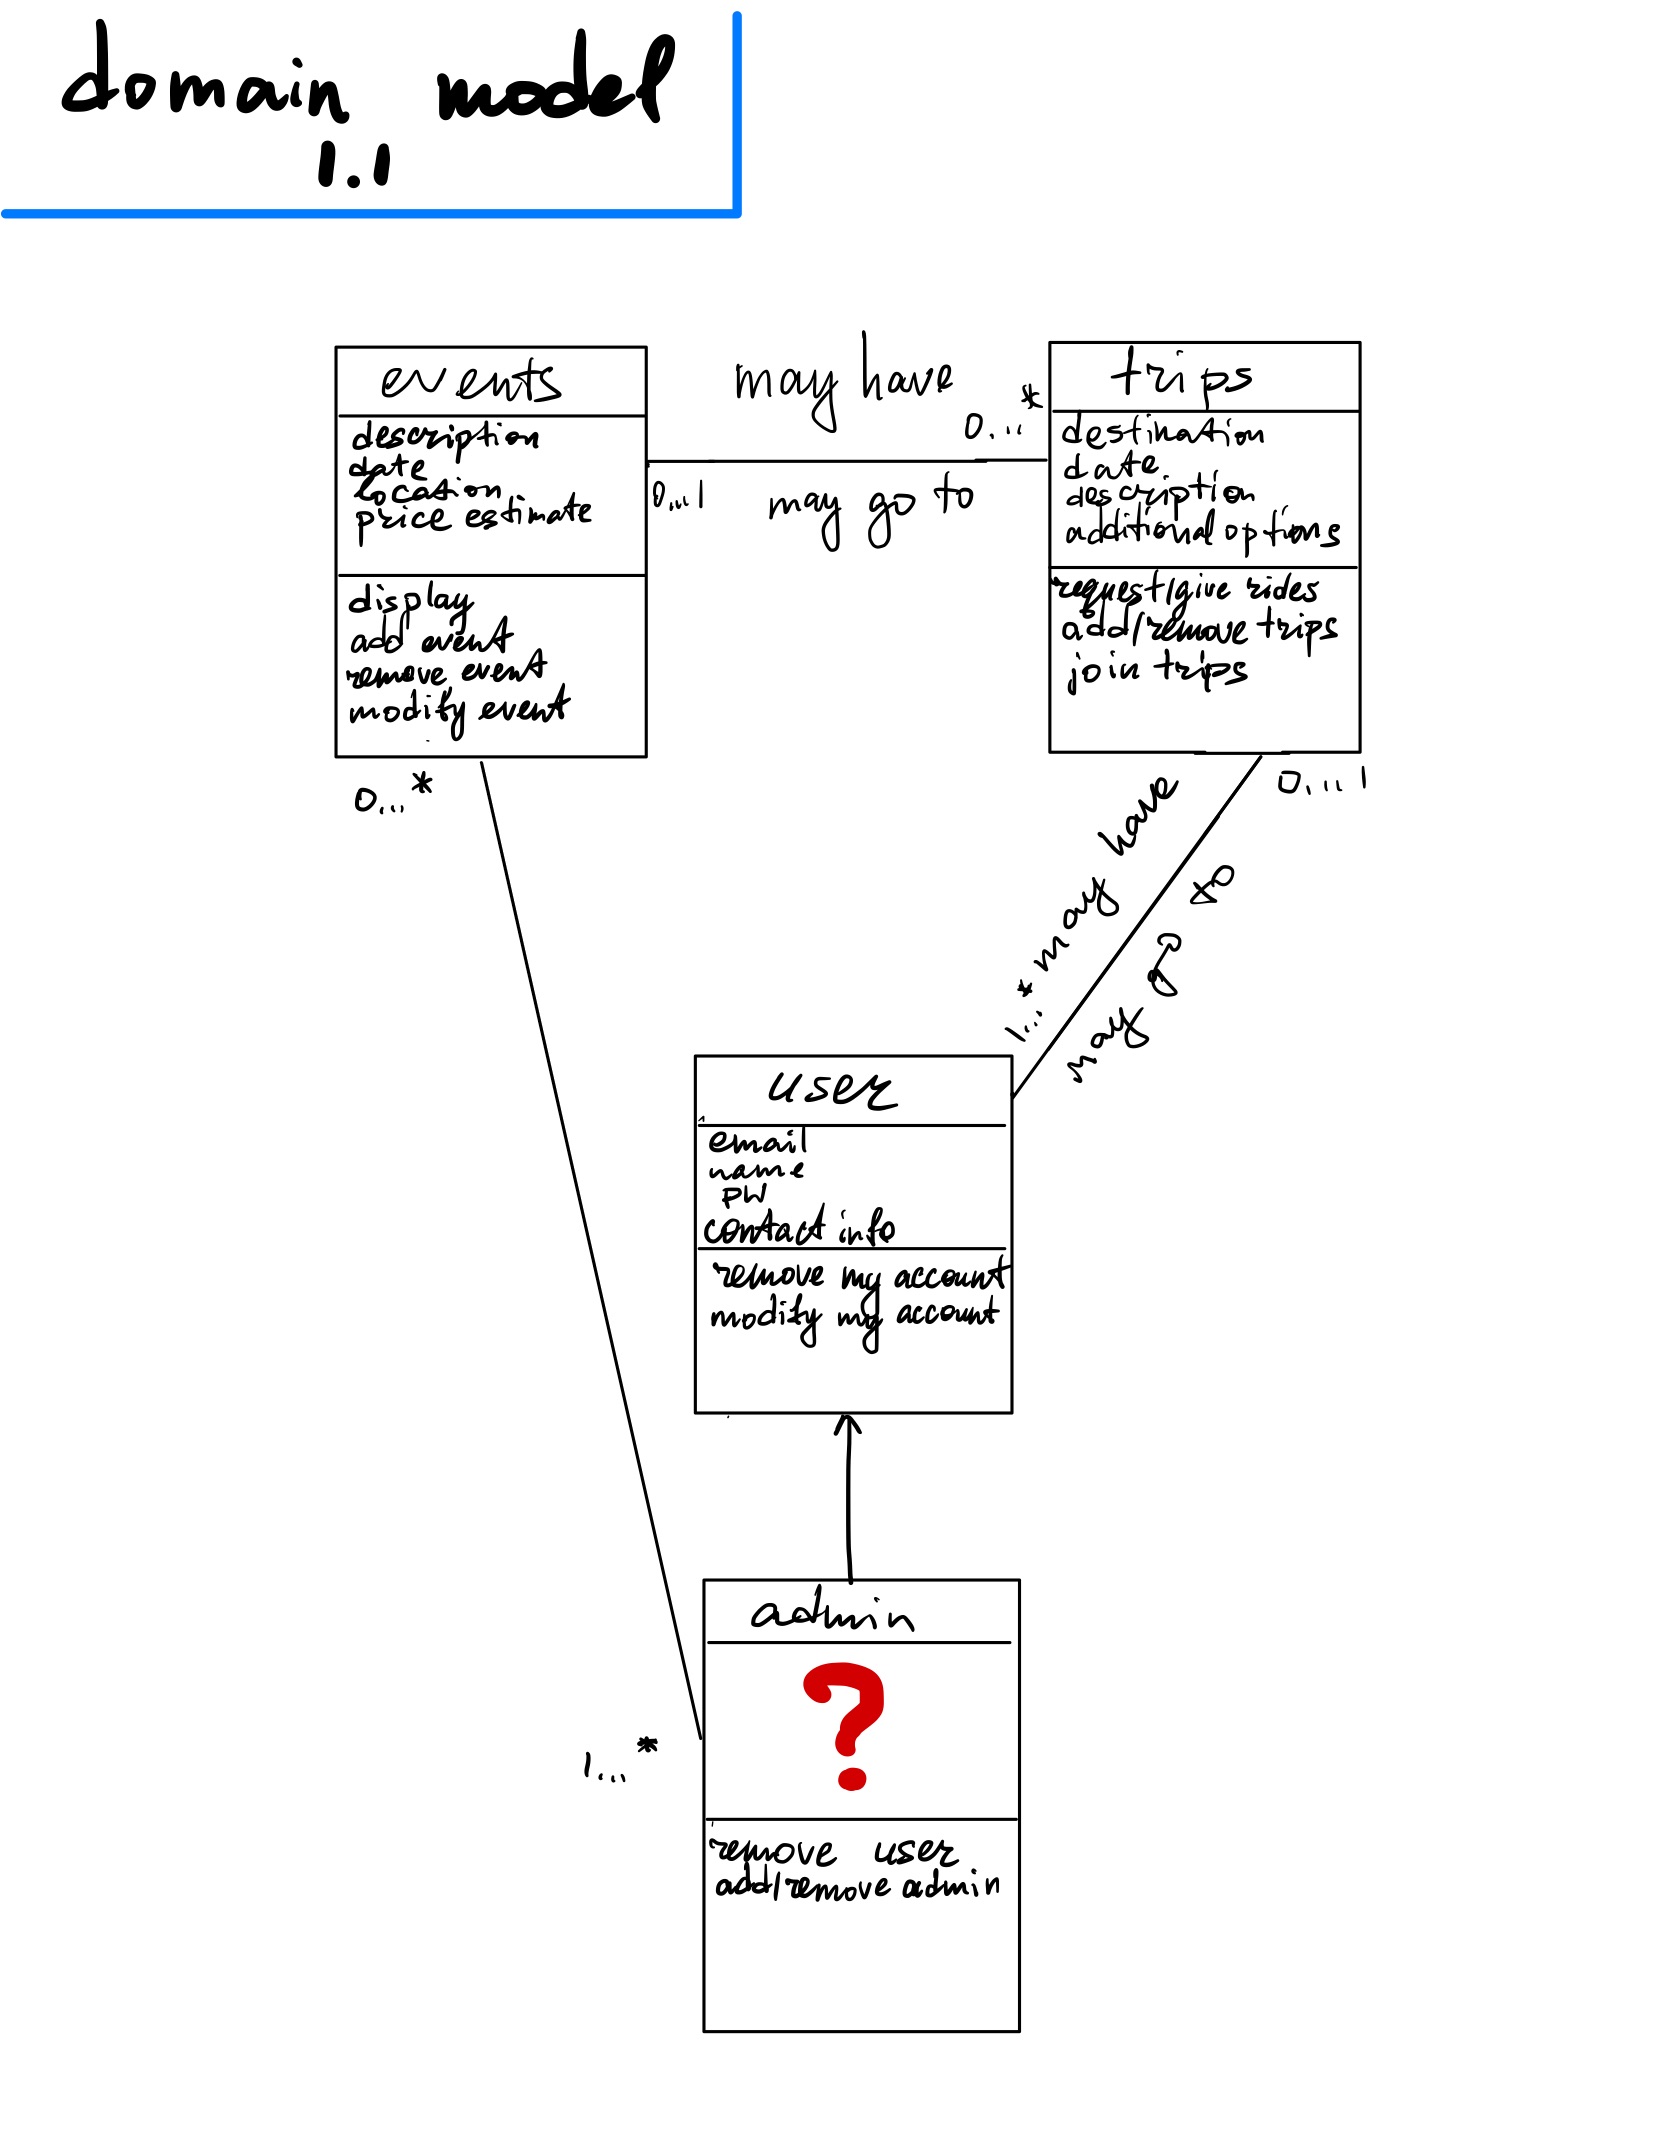 domain model
1.1
events
description
date
location
price estimate
display
add event
remove event
modify event
may have
0...*
0...1
may go to
trips
destination
date
description
additional options
request/give rides
add/remove trips
join trips
0...*
0...1
1...* may have
may go to
user
email
name
pw
contact info
remove my account
modify my account
1...*
admin
?
remove user
add/remove admin